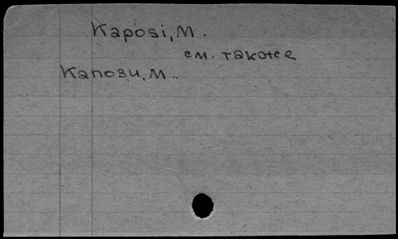 Kaposi, M.
см. также
Капози, М.